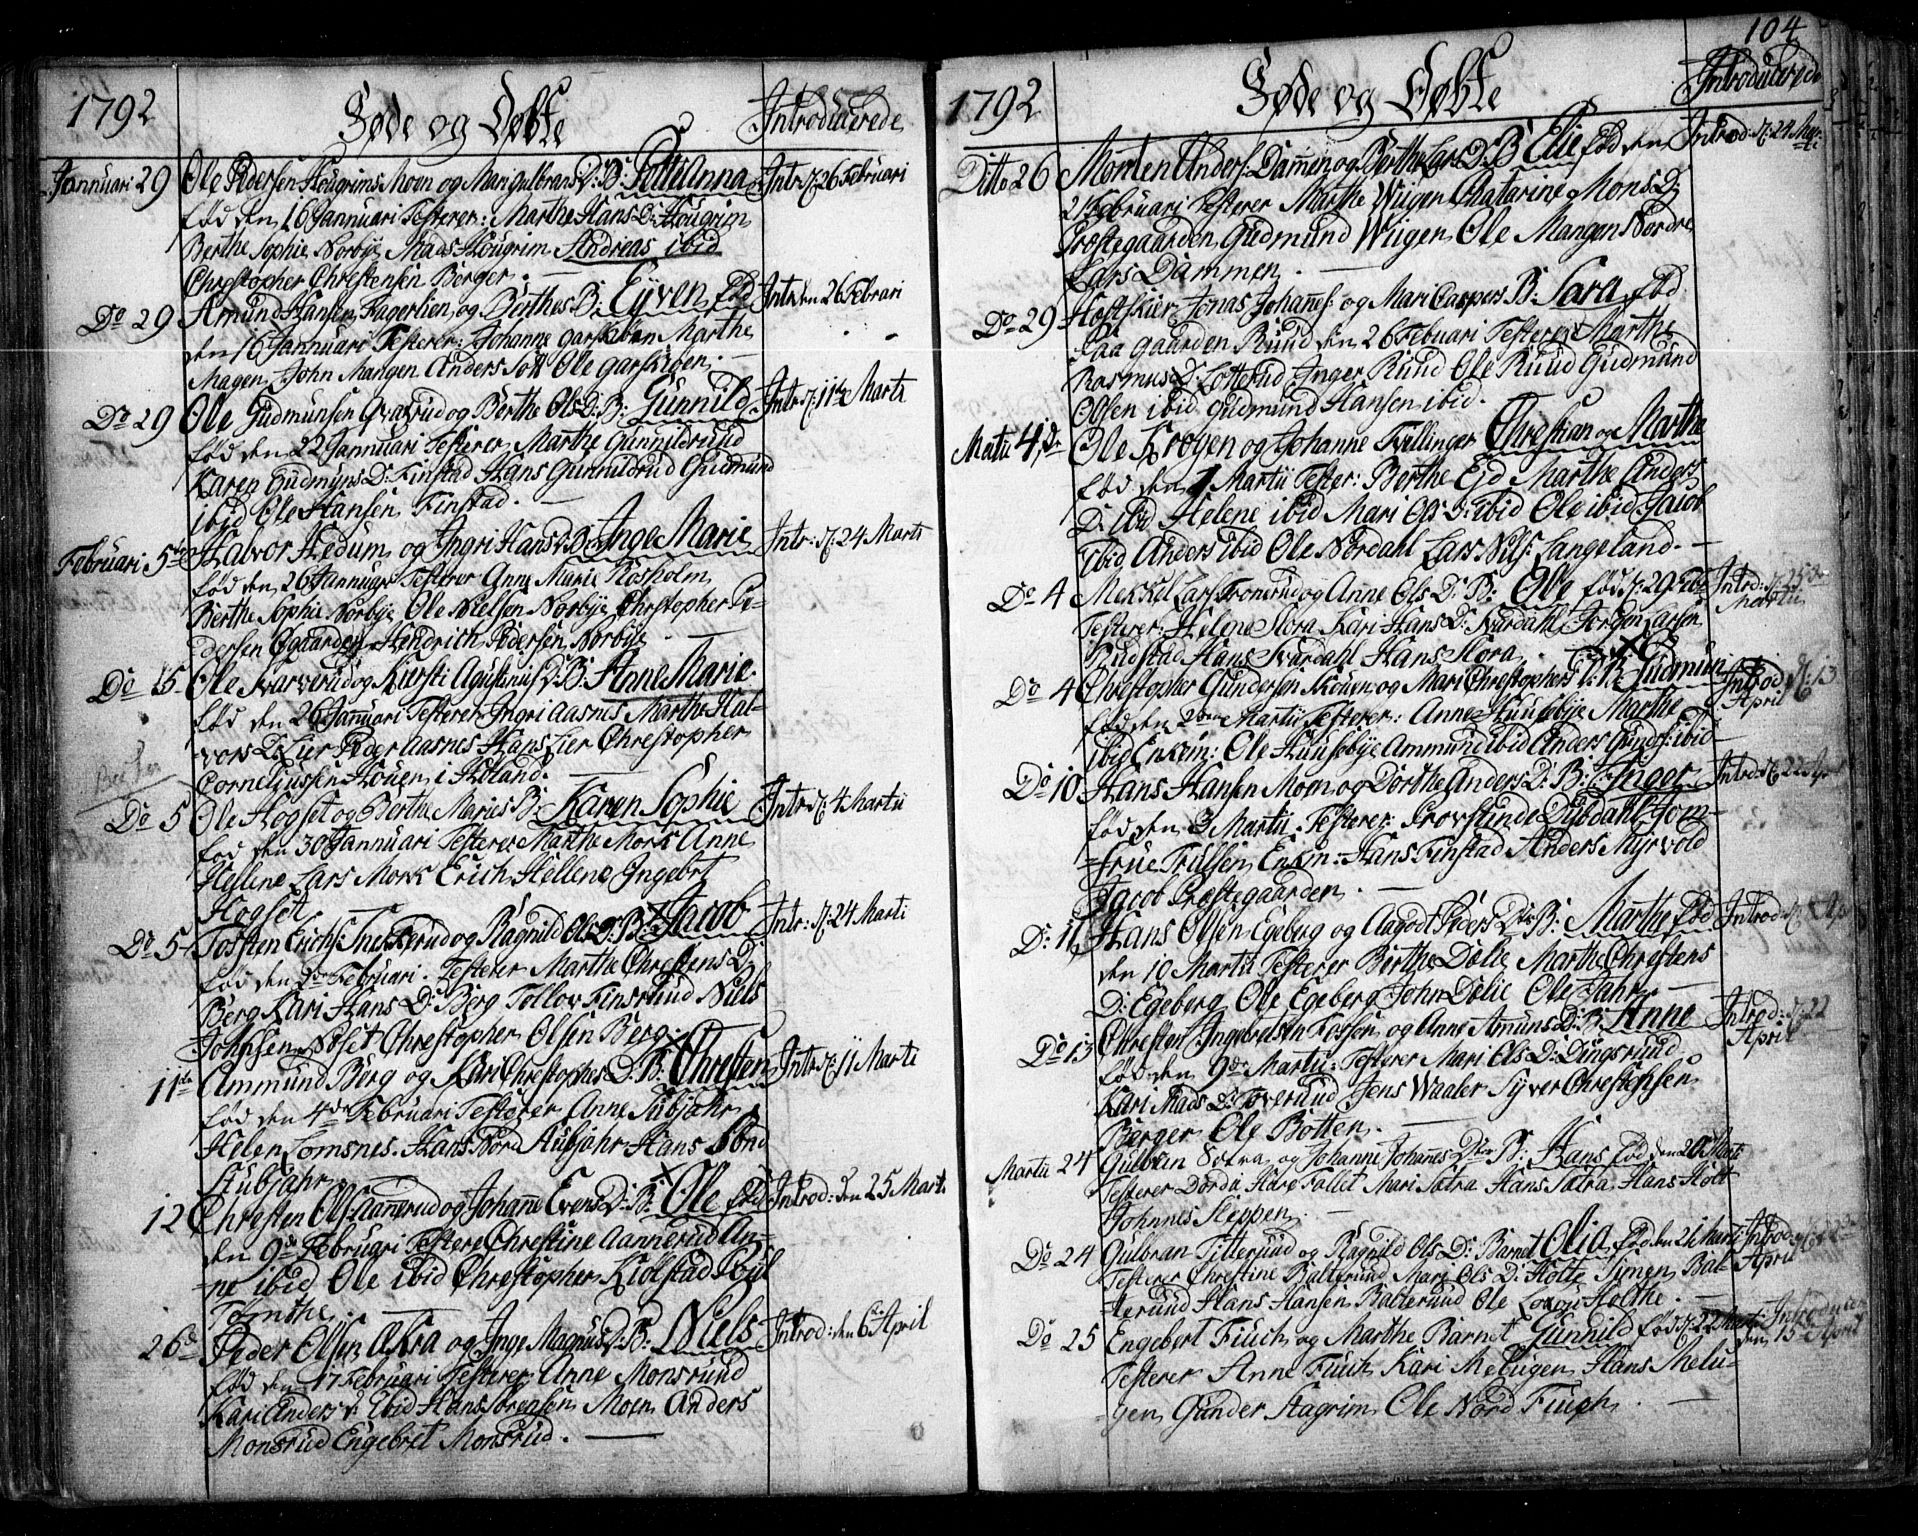 1792
Føde og Døbte
Introducerede
Jannuari 29 Ole Pedersen Hougrims Moen og Mari Gulbrans D: B: Anna Intr: 26 Februari
fød den 16 Jannuari Testerer: Marthe Hans D: Hougrim
Berthe Sophie Norbÿe Mads Hougrim Andreas ibid
Christopher Christensen Berger.
Do 29 Amund Hansen Fagerlien og Berthes B: Eÿven fød Intr den 26 Febrari
den 16 Jannuari Testerer: Johanne Garsiøen Marthe
Magen John Mangen Anders Ole Garsiøen.
Do 29 Ole Gudmunsen og Berthe Ols D: B: Gunnild Intr: 11te Marti
fød den 22 Jannuari Testerer Marthe Gunnildrund
Karen Gudmuns D: Finstad Hans Gunnuldrud Gudmund
ibid Ole Hansen Finstad.
Februari 5te Halvor Hedum og Ingri Hans D: B: Inge Marie Intr: 24 Marti
fød den 26 Jannuari Testerer Anne Marie Rosholm
Berthe Sophie Norbÿe Ole Nielsen Norbÿe Christopher Pe-
dersen Øgaarden Hendrich Pedersen Norbÿe
Do 5 Ole Svarverud og Kiersti Agustinus D: B: Anne Marie
fød den 26 Jannuari Testerer Ingri Aasnes Marthe Hal-
vors D: Lier Peder Aasnes Hans Lier Christopher
Corneljussen Houen i Høland.
Do 5 Ole Hogset og Berthe Maries B: Karen Sophie Intr: 4 Martii
fød den 30 Jannuari Testerer Marthe Mork Anne
Hellene Lars Mork Erich Hellene Ingebrt
Hogset
Do 5 Tosten Erichs: og Ragnild Ols D: B: Jacob Intr: 24 Marti
fød den 2den Februari. Testerer Marthe Christens D:
Berg Kari Hans D: Berg Tollov Finsrud Niels
Johnsen Noset Christopher Olsen Berg.
11te Ammund Berg og Kari Christophers D: B: Christen Intr: 11 Marti
fød den 4de Februari Testerer Anne Kubjahr
Helen Lomsnes. Hans Nord Kubjahr Hans Sønd
Kubjahr
12 Christen Ols: Aannerud og Johanne Evens D: B: Ole fød Introd: den 25 Marti
den 9de Februari Testere Christine Aannerud An-
ne ibid Ole ibid Christopher Kiolstad Poul
Tomthe.
26de Peder Olsen Akra og Inge Magnus D: B: Niels Introd: den 6 April
fød den 17 Februari Testerer Anne Monsrund
Kari Anders D: Ibid Hans Sørensen Moen Anders
Monsrud Engebret Monsrud.
104
1792
Føde og Døbte
Introducerede
Ditto 26 Morten Anders: Dammen og Berthe Lars D: B Elie fød den Introd: 24 Mar-
ti
21 Februari Testerer Marthe Wiigen Chatarine Mons D:
Præstegaarden Gudmund Wiigen Ole Mangen Nordre
Lars Dammen.
Do 29 Jonas Johans: og Mari Caspers B: Sara fød
paa Gaarden Ruud den 26 Februari Testerer Marthe
Rasmus D: Lotterud Inger Ruud Ole Ruud Gudmund
Olsen ibid Gudmund Hansen ibid.
Martii 4de Ole Krogen og Johanne Tvillinger Christian og Marthe
fød den 1 Martii Tester: Berthe Ejd Marthe Anders
D: ibid Helene ibid Mari Ols D: ibid Ole ibid Jacob
ibid Anders ibid Ole Nordahl Lars Nils: Langeland.
Do 4 Mekkel Lars: og Anne Ols D: B: Ole fød 29 Feb: Introd: 25de
Martii
Testerer: Helene Flora Kari Hans D: Kurdahl Jorgen Larsen
Rudstad Hans Kurdahl Hans Flora.
Do 4 Christopher Gundersen Skouen og Mari Christophers D: B: Gudmun Introd 13
April
fød den 2den Martii Testerer: Anne Huusebÿe Marthe
ibid Enkem: Ole Huusebÿe Ammund ibid Anders Gunds: ibid
Do 10 Hans Hansen Moen og Dorthe Anders D: B: Inger Introd: 22 April
fød den 3 Martii. Testerer: Provstinde Dÿbdahl Jom-
frue Trulsen Enkm: Hans Finstad Anders Myrvold
Jacob Præstegaarden.
D: 11 Hans Olsen Egeberg og Aagot Peders Dter B: Marthe fød Introd: 8 Ap
den 10 Martii Testerer Berthe Dølie Marthe Christens
D: Egeberg Ole Egeberg John Dølie Ole Jahr
Do 13 Christen Ingebretsen Fossen og Anne Amuns D: B: Anne Introd: 22
April
fød den 9de Martii: Testerer Mari Ols D: Dingsruud
Kari Mads D: Toverund Jens Waaler Syver Christensen
Berger Ole Botten.
Martii 24 Gulbran Sotra og Johanne Johanes Dter B: Hans fød den 20 Marti
Testerer Dordi Hare Tollet Mari Satra Hans Satra Hans Holt
Johannes Sleppen.
Do 24 Gulbran Titterud og Ragnild Ols D: Barnet Olia fød den 21 Marti Introd
April
Testerer Christine Balterund Mari Ols D: Holte Simen Bal-
terund Hans Hansen Balterund Ole Holthe.
Do 25 Engebert Fiuch og Marthe Barnet Gunnild fød 22 Marti Introduc
den 15 April
Testerer Anne Fiuch Kari Melugen Hans Melu-
gen Gunder Hagrim Ole Nord Fiuch.